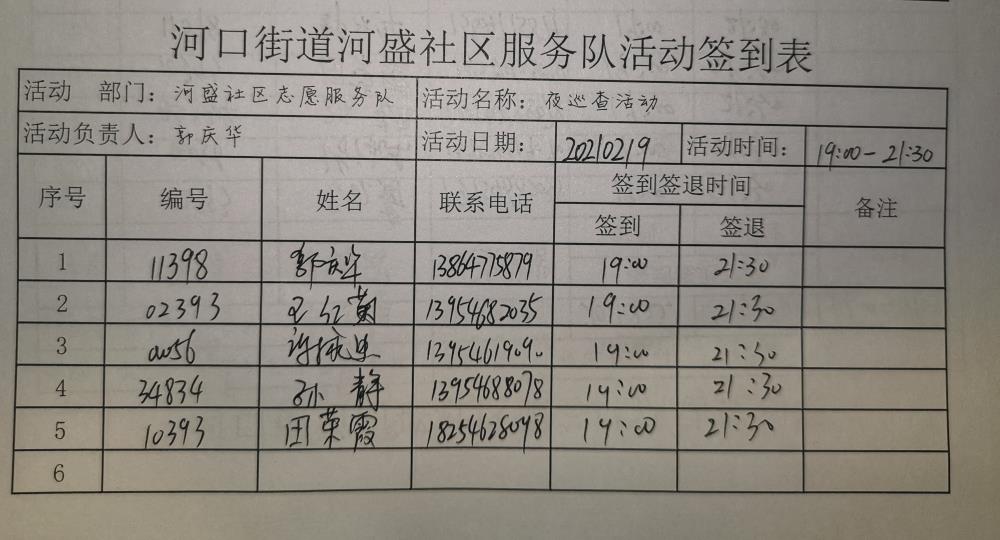 河口街道河盛社区服务队活动签到表
活动 部门：河盛社区志愿服务队 活动名称：夜巡查活动
活动负责人：郭庆华 活动日期： 20210219 活动时间： 19:00-21:30
序号 编号 姓名 联系电话 签到签退时间 备注
签到 签退
1 11398 郭庆华 13864775879 19:00 21:30
2 02393 13954682035 19:00 21:30
3 13954619090 19:00 21:30
4 34834 孙静 13954688078 19:00 21:30
5 10393 田荣霞 19:00 21:30
6